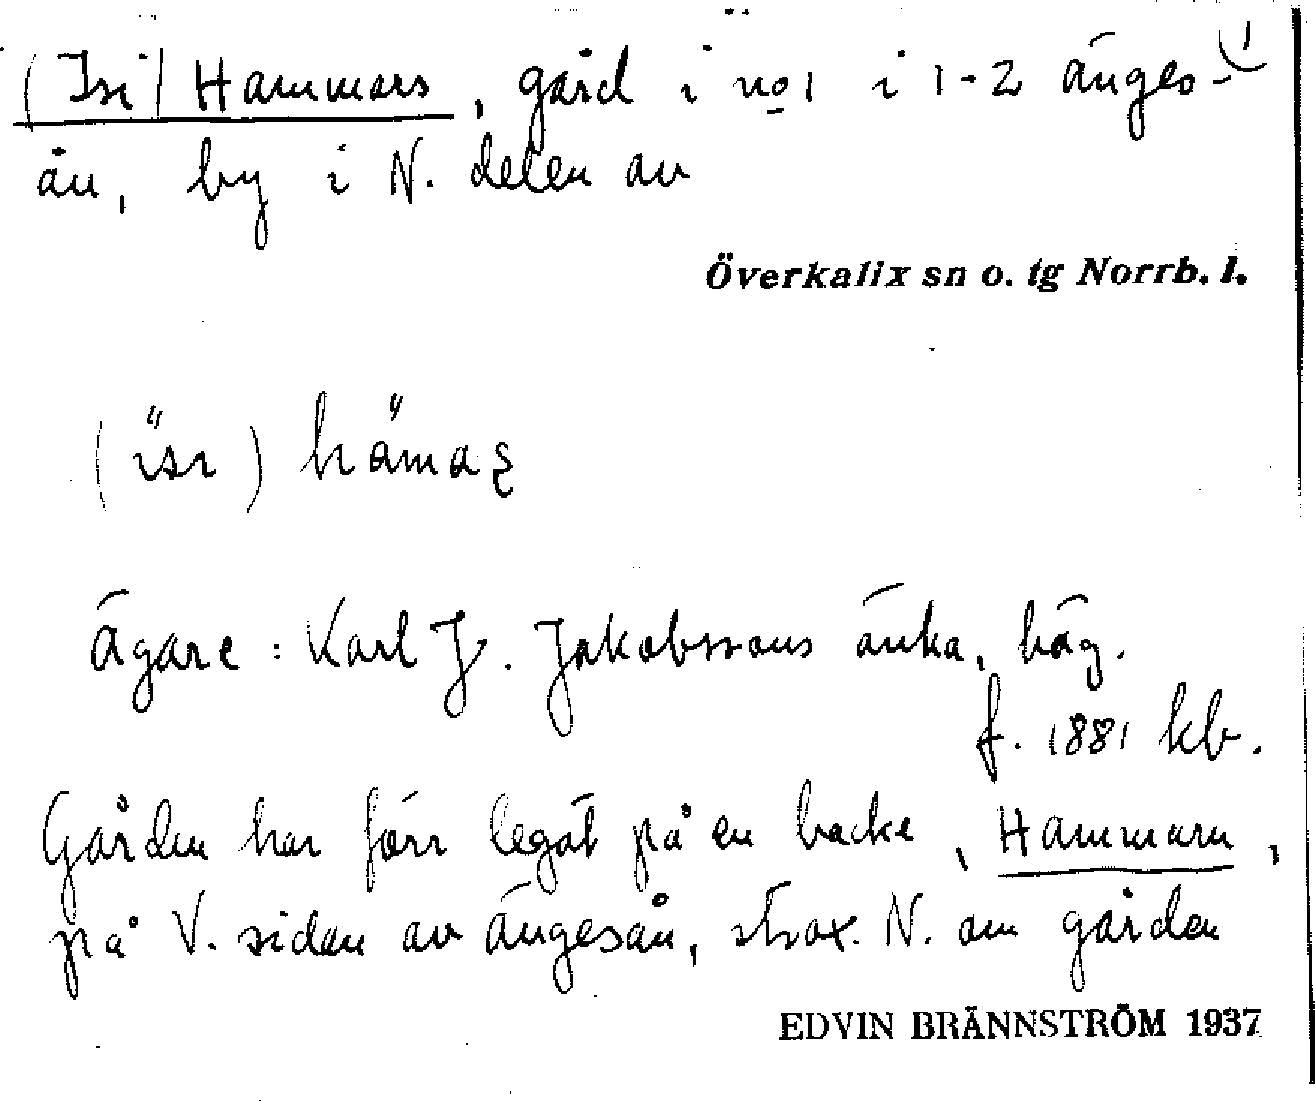 (Isi) Hammars, gård i no 1 i 1-2 Änges- 1)
ån, by i N. delen av
Överkalix sn o. tg Norrb. l.
(ïsı) hämaş
Ägare: Karl J. Jakobssons änka, häg.
f. 1881 kb.
Gården har förr legat på en backe, Hammarn,
på V. sidan av Ängesån, strax N. om gården
EDVIN BRÄNNSTRÖM 1937